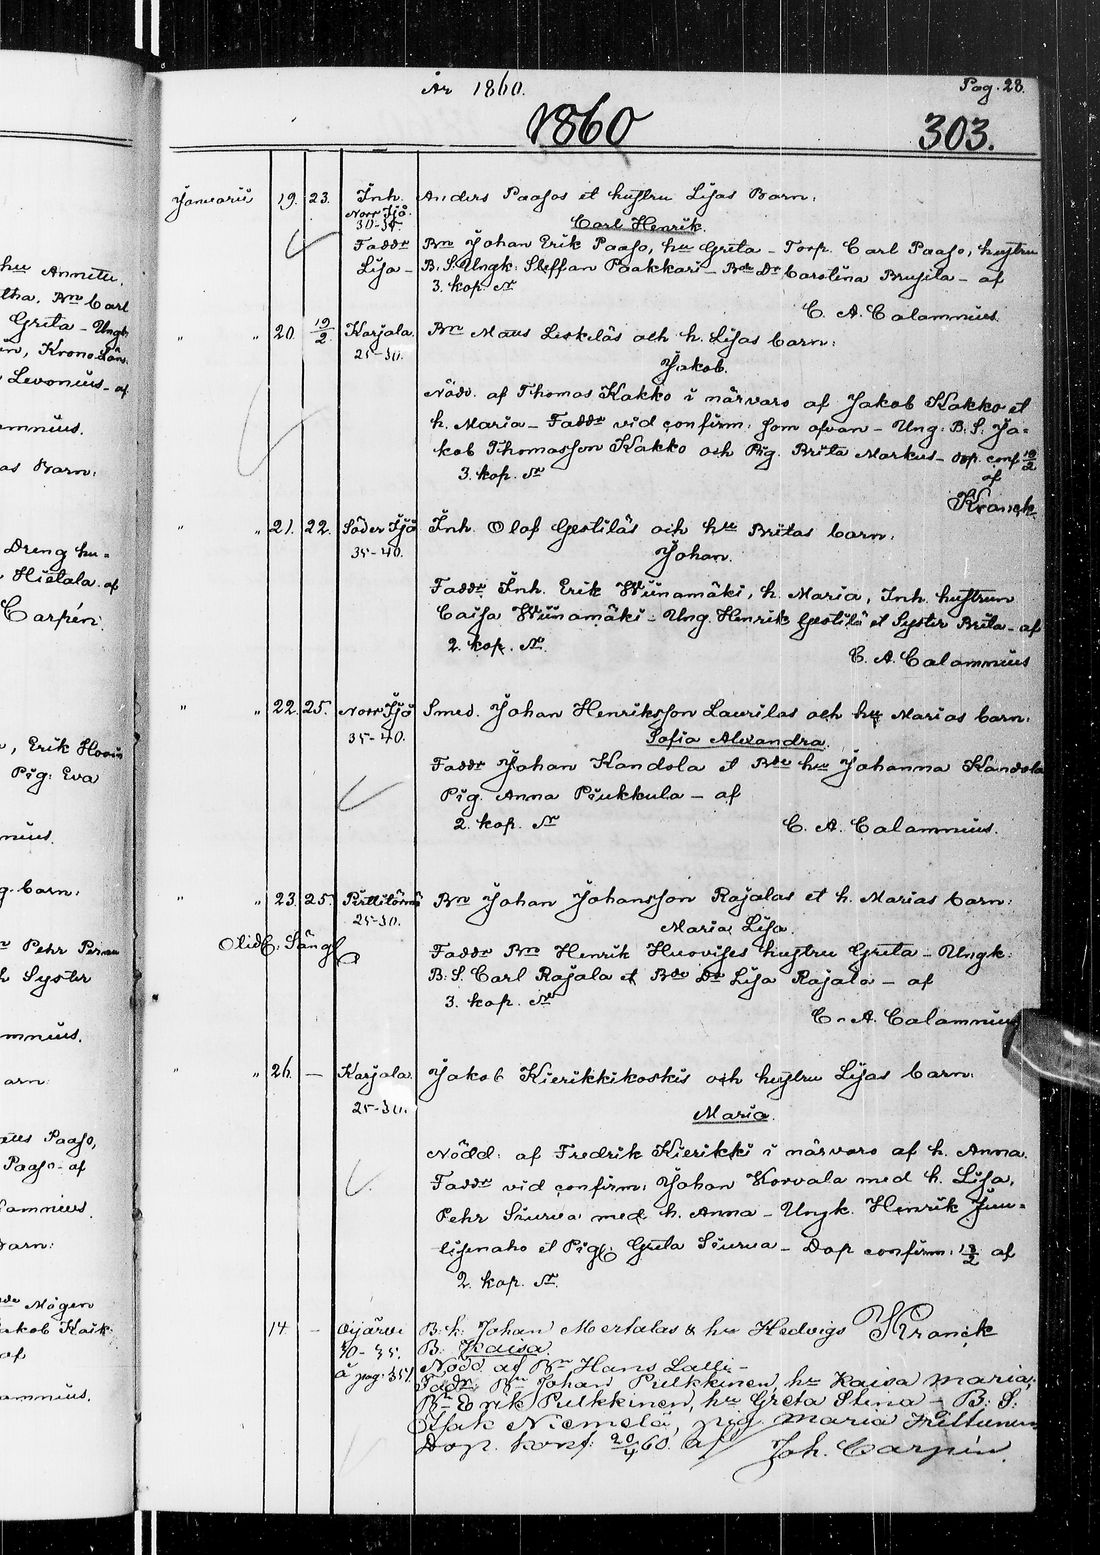 År 1860. Pag. 28.
1860 303.
hu Annetu.
tha. Bn Carl
Greta - Ungk
Krono Län.
Levonius - af
mnius.
as Barn:
Dreng hu=
Hietala. af
Carpén.
Erik Hoain
Pig: Eva
nius.
g. barn:
Pehr
Syster
mnius.
arn:
Paaso,
Paaso - af
lamnius.
Barn:
Mågen
akob Kaik
af
lamnius.
Januarii 19. 23. Inh. Anders Paasos et hustru Lisas Barn:
Norr Ijå
30-35. Carl Henrik.
Faddr Bn Johan Erik Paaso, hu Greta - Torp. Carl Paaso, hustru
Lisa - B. S. Ungk: Steffan Paakkari - Bde Dr Carolina Brusila - af
3. kop. Sr
C. A. Calamnius.
" " 20. 19/2 Karjala. Bn Mats Liskiläs och h. Lisas barn:
25-30. Jakob.
Nödd. af Thomas Kakko i närvaro af Jakob Kakko et
h. Maria - Faddr vid confirm: som ofvan - Ung: B. S. Ja=
kob Thomasson Kakko och Pig. Brita Markus - Dop. conf 19/2
3. kop. Sr af
Kranck
" " 21. 22. Söder Ijå Inh. Olof Gestiläs och hu Britas barn:
35-40. Johan.
Faddr Inh. Erik Wiinamäki, h. Maria, Inh. hustrun
Caisa Wiinamäki - Ung. Henrik Gestilä et Syster Brita - af
2. kop. Sr.
C. A. Calamnius
" " 22. 25. Norr Ijå Smed. Johan Henriksson Laurilas och hu Marias barn:
35-40. Sofia Alexandra.
Faddr Johan Kandola et Bde hu Johanna Kandola
Pig. Anna Piukkula - af
2. kop. Sr C. A. Calamnius.
" " 23. 25. Bn Johan Johansson Rajalas et h. Marias barn:
25-30. Maria Lisa.
Faddr Bn Henrik Huovises hustru Greta - Ungk:
B: S. Carl Rajala et Bde Dr Lisa Rajala - af
3. kop. Sr
C. A. Calamnius
" " 26. — Karjala. Jakob Kierikkikoskis och hustru Lisas barn:
25-30. Maria.
Nödd: af Fredrik Kierikki i närvaro af h. Anna.
Faddr vid confirm: Johan Korvala med h. Lisa,
Pehr Siurua med h. Anna - Ungk. Henrik Juu=
lisenaho et Pig: Greta Siurua - Dop confirm: 19/2 af
2. kop. Sr.
Kranck
14 - Oijärvi B. k. Johan Mertalas & hu Hedvigs
B: Kaisa.
å pag. 351 Nödd af Bn Hans Lalli -
Fadr. Bn Johan Pulkkinen, hu Kaisa Maria,
Bn Erik Pulkkinen, hu Greta Stina - B: S:
Isak Niemelä, pig. Maria
Dop. konf. 20/4 60. af Joh. Carpén.